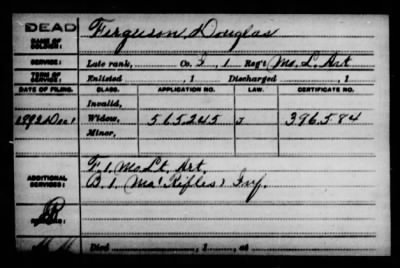 DEAD
NAME OF SOLDIER: Ferguson, Douglas
SERVICE: Late rank, Co. I, 1 Reg't Mo. L. Art
TERM OF SERVICE: Enlisted , 1 Discharged , 1
DATE OF FILING. CLASS. APPLICATION NO. LAW. CERTIFICATE NO.
Invalid,
1892 Dec 1 Widow, 565245 J 396584
Minor,
ADDITIONAL SERVICES: F. 1. Mo. Lt. Art.
B. 1. Mo. (Rifles) Inf.
Died , 1 , at